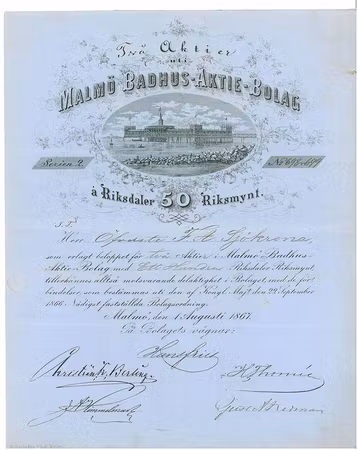 Två Aktier
uti
MALMÖ BADHUS-AKTIE-BOLAG
Serien 2.
No 698-699
à Riksdaler 50 Riksmynt.
S. T.
Herr F. A. Sjökrona,
som erlagt beloppet för två Aktier i Malmö Badhus-
Aktie-Bolag med Ett Hundra Riksdaler Riksmynt,
tillerkännes alltså motsvarande delaktighet i Bolaget, med de för-
bindelser, som bestämmas uti den af Kongl. Maj:t den 22 September
1866 Nådigst fastställda Bolagsordning.
Malmö, den 1 Augusti 1867.
På Bolagets vägnar: